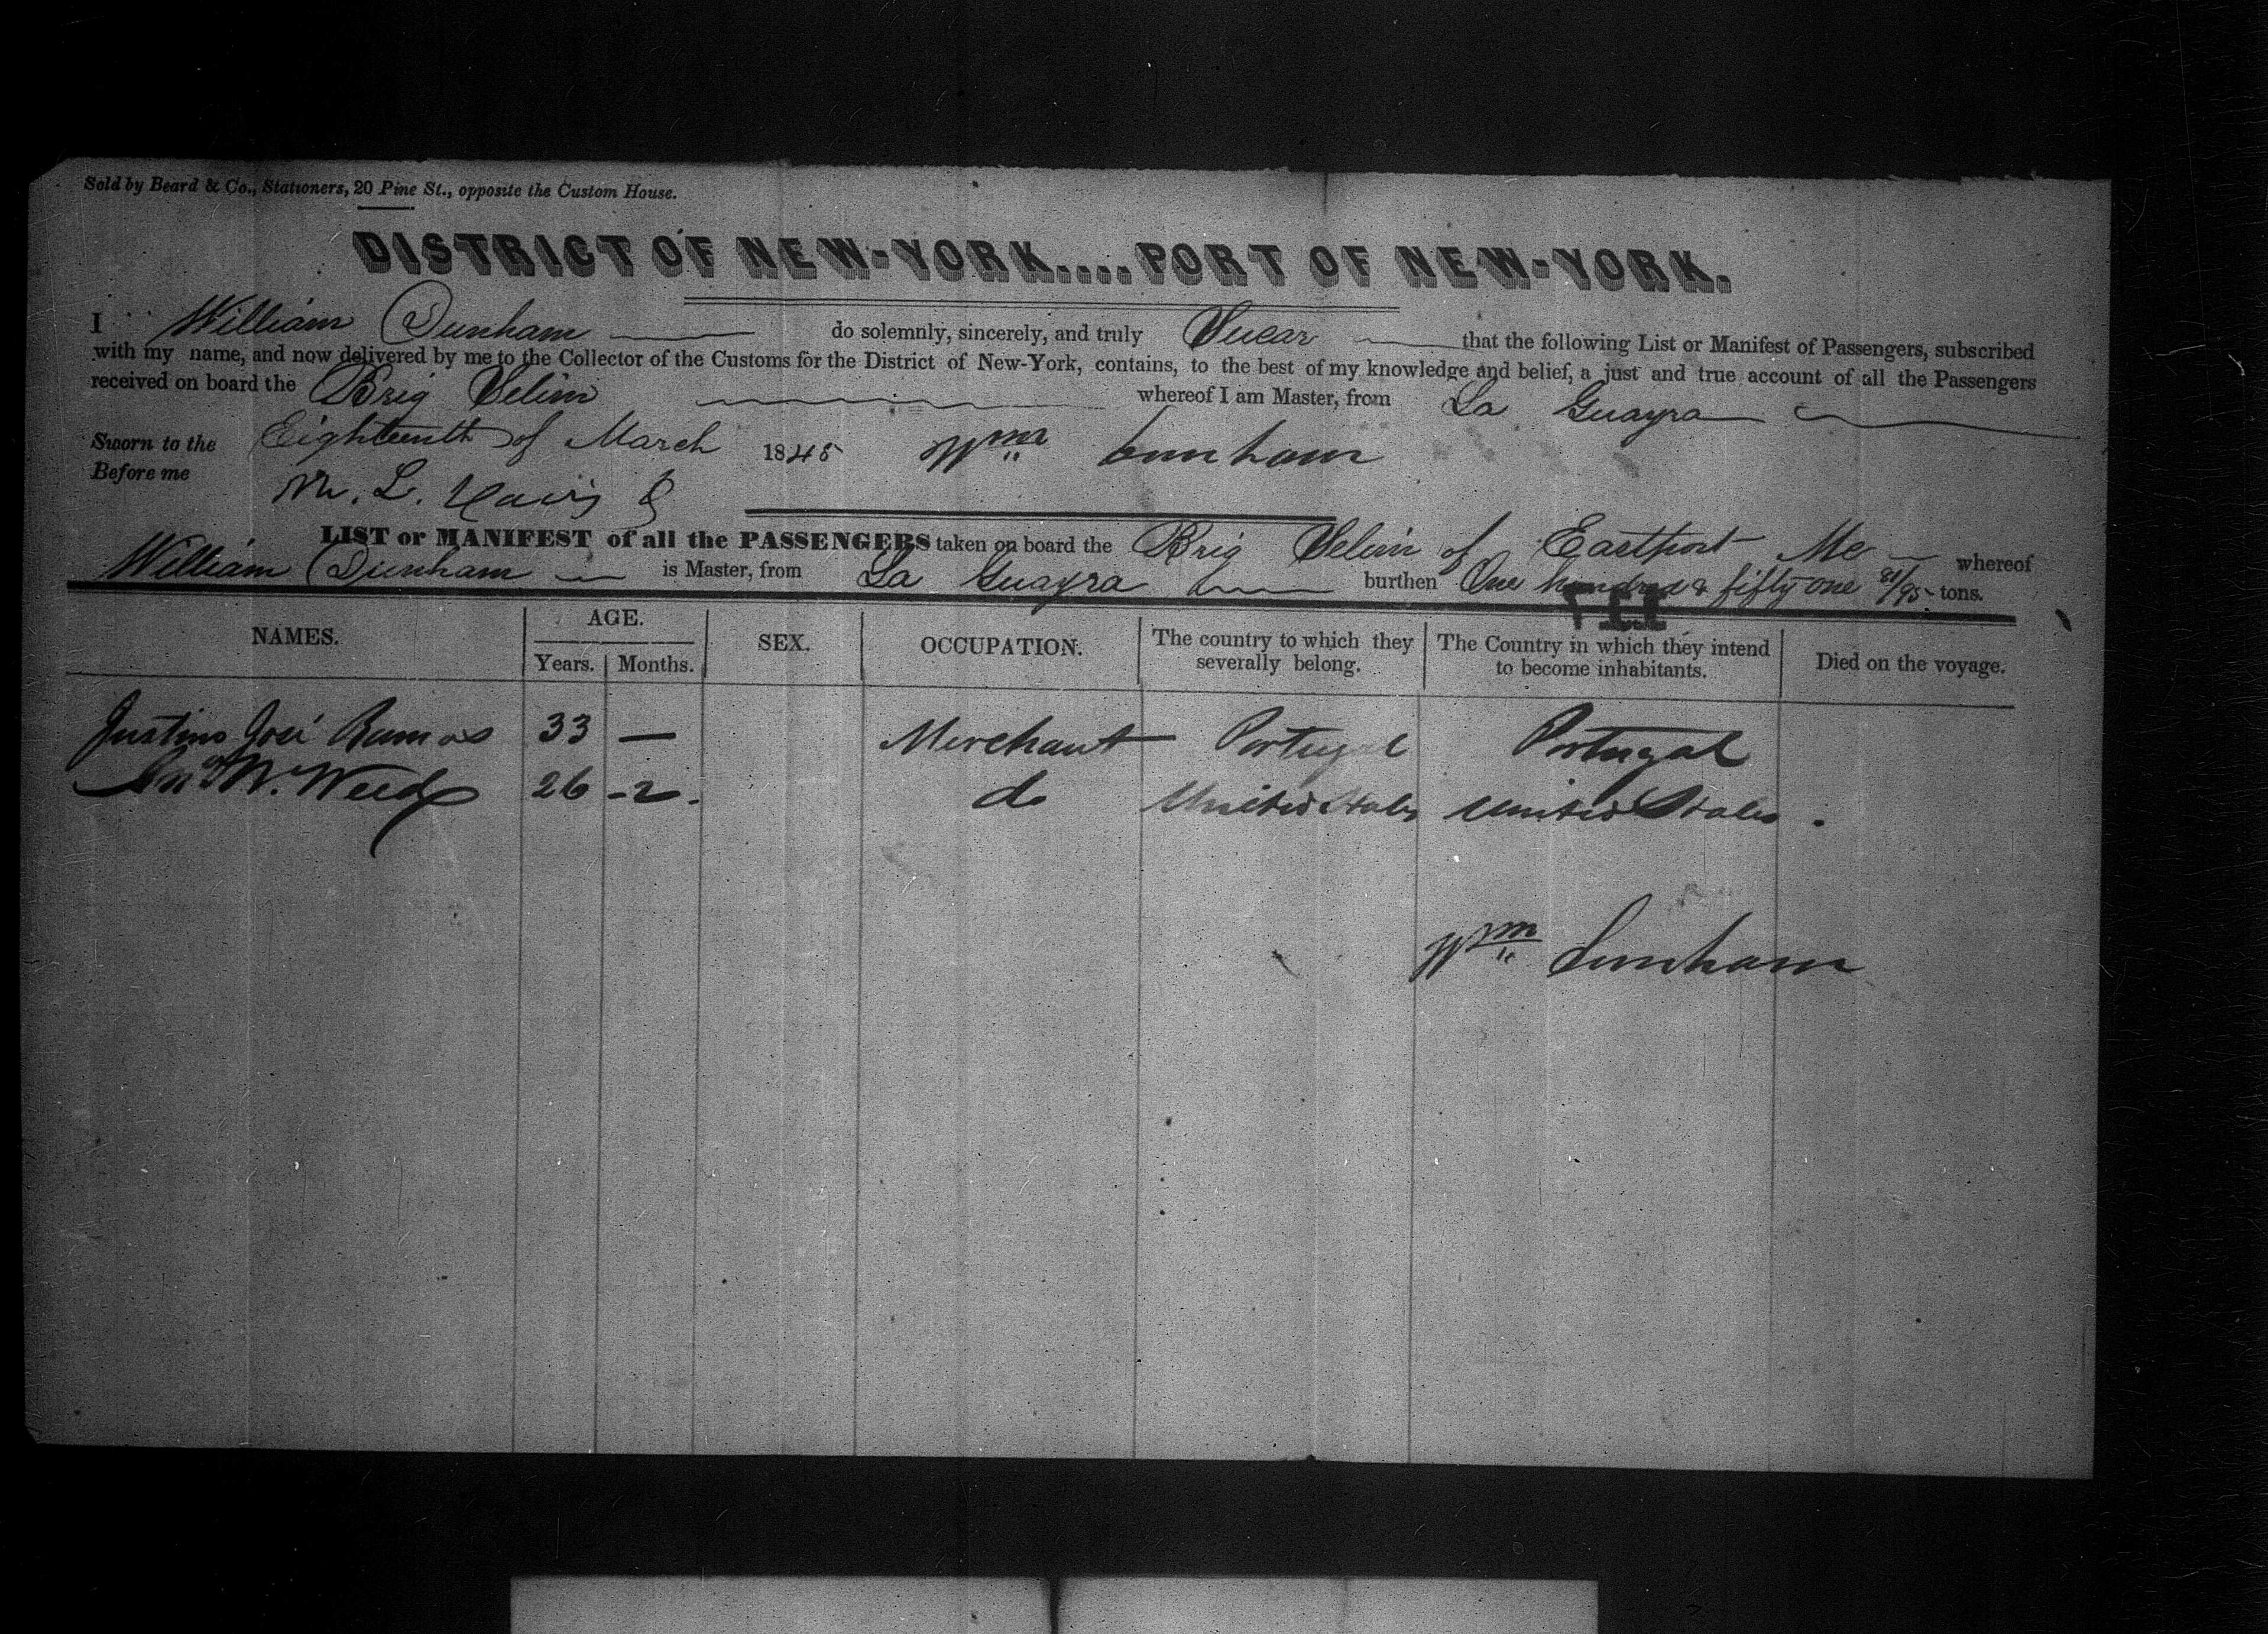 Sold by Beard & Co., Stationers, 20 Pine St., opposite the Custom House.
DISTRICT OF NEW-YORK....PORT OF NEW-YORK.
I William Dunham do solemnly, sincerely, and truly Swear that the following List or Manifest of Passengers, subscribed
with my name, and now delivered by me to the Collector of the Customs for the District of New-York, contains, to the best of my knowledge and belief, a just and true account of all the Passengers
received on board the Brig Selim whereof I am Master, from La Guayra
Sworn to the Eighteenth of March 1845 Wm Dunham
Before me M. L. Davis
LIST or MANIFEST of all the PASSENGERS taken on board the Brig Selim of Eastport Me whereof
William Dunham is Master, from La Guayra burthen One hundred & fifty one 81/95 tons.
NAMES. AGE. Years. Months. SEX. OCCUPATION. The country to which they severally belong. The Country in which they intend to become inhabitants. Died on the voyage.
Justino José Ramos 33 — Merchant Portugal Portugal
W. Weed 26 -2. do United States United States
Wm Dunham